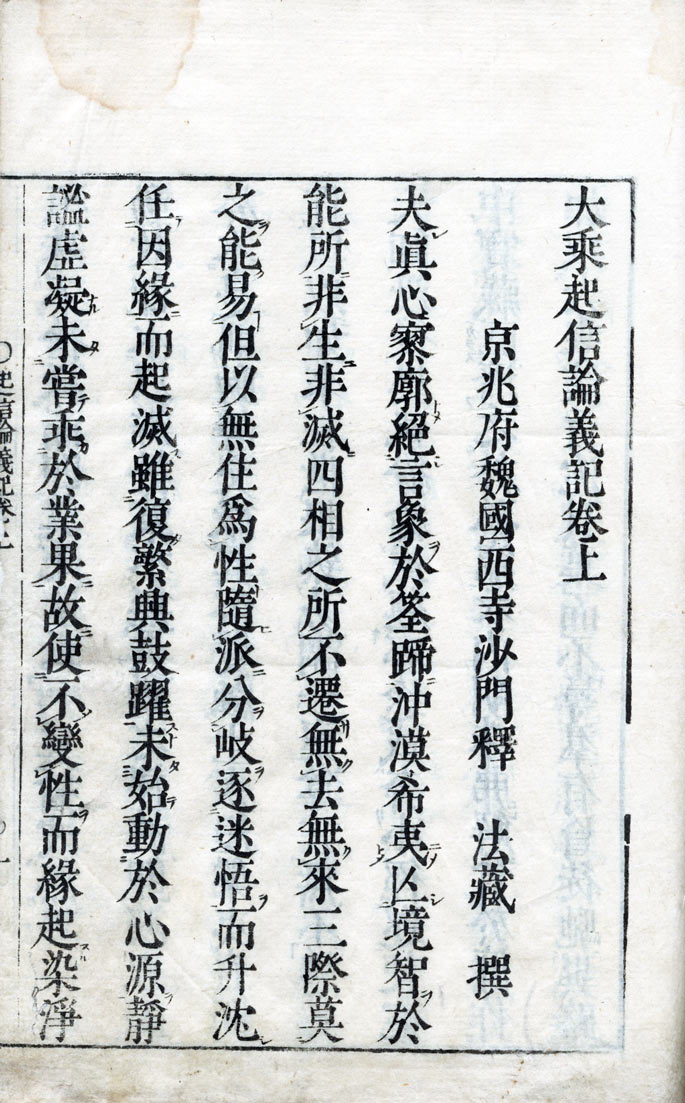 大乘起信論義記卷上
京兆府魏國西寺沙門釋　法藏　撰
夫眞心寥廓絕言象於筌蹄沖漠希夷亾境智於
能所非生非滅四相之所不遷無去無來三際莫
之能易但以無住爲性隨派分岐逐迷悟而升沈
任因緣而起滅雖復繁興鼓躍未始動於心源靜
謐虛凝未嘗乖於業果故使不變性而緣起染淨
起信論義記卷上